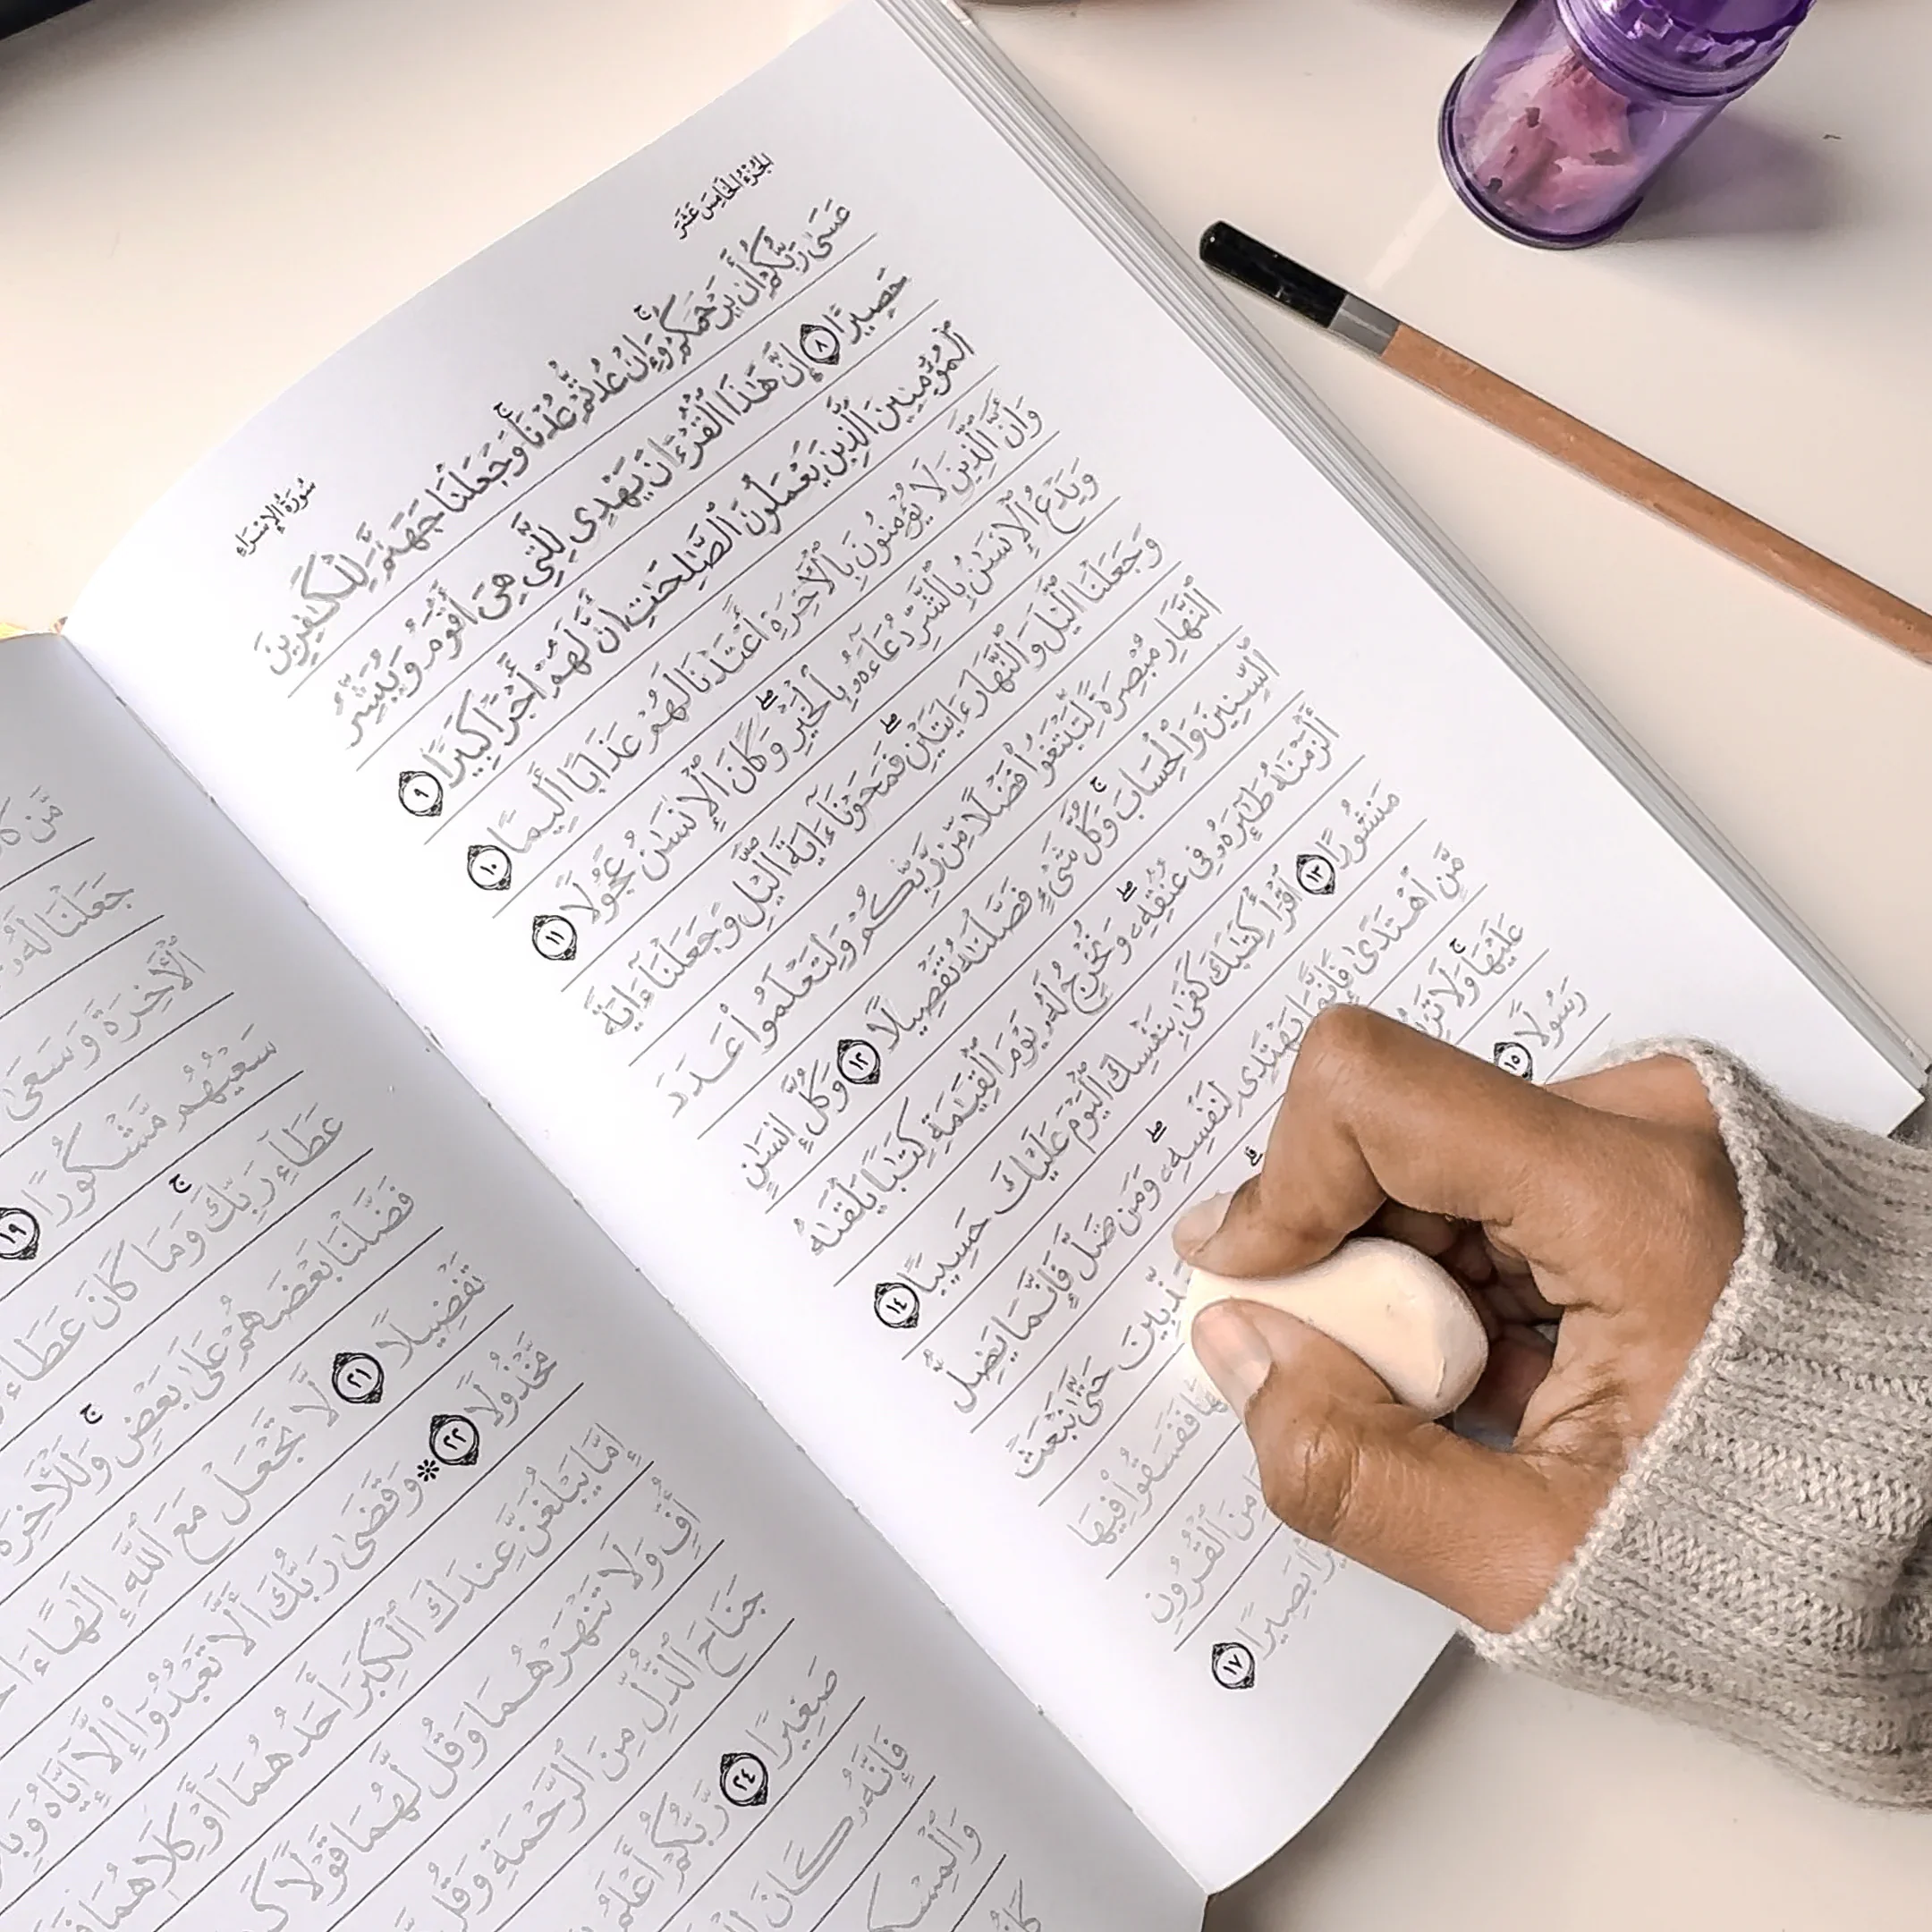 الجزء الخامس عشر
سورة الإسراء
عَسَىٰ رَبُّكُمْ أَن يَرْحَمَكُمْ ۚ وَإِنْ عُدتُّمْ عُدْنَا ۚ وَجَعَلْنَا جَهَنَّمَ لِلْكَٰفِرِينَ
حَصِيرًا ٨ إِنَّ هَٰذَا ٱلْقُرْءَانَ يَهْدِى لِلَّتِى هِىَ أَقْوَمُ وَيُبَشِّرُ
ٱلْمُؤْمِنِينَ ٱلَّذِينَ يَعْمَلُونَ ٱلصَّٰلِحَٰتِ أَنَّ لَهُمْ أَجْرًا كَبِيرًا ٩
وَأَنَّ ٱلَّذِينَ لَا يُؤْمِنُونَ بِٱلْأَخِرَةِ أَعْتَدْنَا لَهُمْ عَذَابًا أَلِيمًا ١٠
وَيَدْعُ ٱلْإِنسَٰنُ بِٱلشَّرِّ دُعَآءَهُۥ بِٱلْخَيْرِ ۖ وَكَانَ ٱلْإِنسَٰنُ عَجُولًا ١١
وَجَعَلْنَا ٱلَّيْلَ وَٱلنَّهَارَ ءَايَتَيْنِ ۖ فَمَحَوْنَآ ءَايَةَ ٱلَّيْلِ وَجَعَلْنَآ ءَايَةَ
ٱلنَّهَارِ مُبْصِرَةً لِّتَبْتَغُوا۟ فَضْلًا مِّن رَّبِّكُمْ وَلِتَعْلَمُوا۟ عَدَدَ
ٱلسِّنِينَ وَٱلْحِسَابَ ۚ وَكُلَّ شَىْءٍ فَصَّلْنَٰهُ تَفْصِيلًا ١٢ وَكُلَّ إِنسَٰنٍ
أَلْزَمْنَٰهُ طَٰٓئِرَهُۥ فِى عُنُقِهِۦ ۖ وَنُخْرِجُ لَهُۥ يَوْمَ ٱلْقِيَٰمَةِ كِتَٰبًا يَلْقَىٰهُ
مَنشُورًا ١٣ ٱقْرَأْ كِتَٰبَكَ كَفَىٰ بِنَفْسِكَ ٱلْيَوْمَ عَلَيْكَ حَسِيبًا ١٤
مَّنِ ٱهْتَدَىٰ فَإِنَّمَا يَهْتَدِى لِنَفْسِهِۦ ۖ وَمَن ضَلَّ فَإِنَّمَا يَضِلُّ
عَلَيْهَا ۚ وَلَا حَتَّىٰ نَبْعَثَ
رَسُولًا ١٥ فَفَسَقُوا۟ فِيهَا
مِنَ ٱلْقُرُونِ
بَصِيرًا ١٧
مَّن
جَعَلْنَا لَهُۥ
ٱلْأَخِرَةَ وَسَعَىٰ
سَعْيُهُم مَّشْكُورًا ١٩
عَطَآءِ رَبِّكَ ۚ وَمَا كَانَ عَطَآءُ
فَضَّلْنَا بَعْضَهُمْ عَلَىٰ بَعْضٍ ۚ وَلَلْأَخِرَةُ
تَفْضِيلًا ٢١ لَّا تَجْعَلْ مَعَ ٱللَّهِ إِلَٰهًا
مَّخْذُولًا ٢٢ * وَقَضَىٰ رَبُّكَ أَلَّا تَعْبُدُوٓا۟ إِلَّآ إِيَّاهُ
إِمَّا يَبْلُغَنَّ عِندَكَ ٱلْكِبَرَ أَحَدُهُمَآ أَوْ كِلَاهُمَا
أُفٍّ وَلَا تَنْهَرْهُمَا وَقُل لَّهُمَا قَوْلًا
جَنَاحَ ٱلذُّلِّ مِنَ ٱلرَّحْمَةِ وَقُل
صَغِيرًا ٢٤ رَّبُّكُمْ أَعْلَمُ
فَإِنَّهُۥ كَانَ